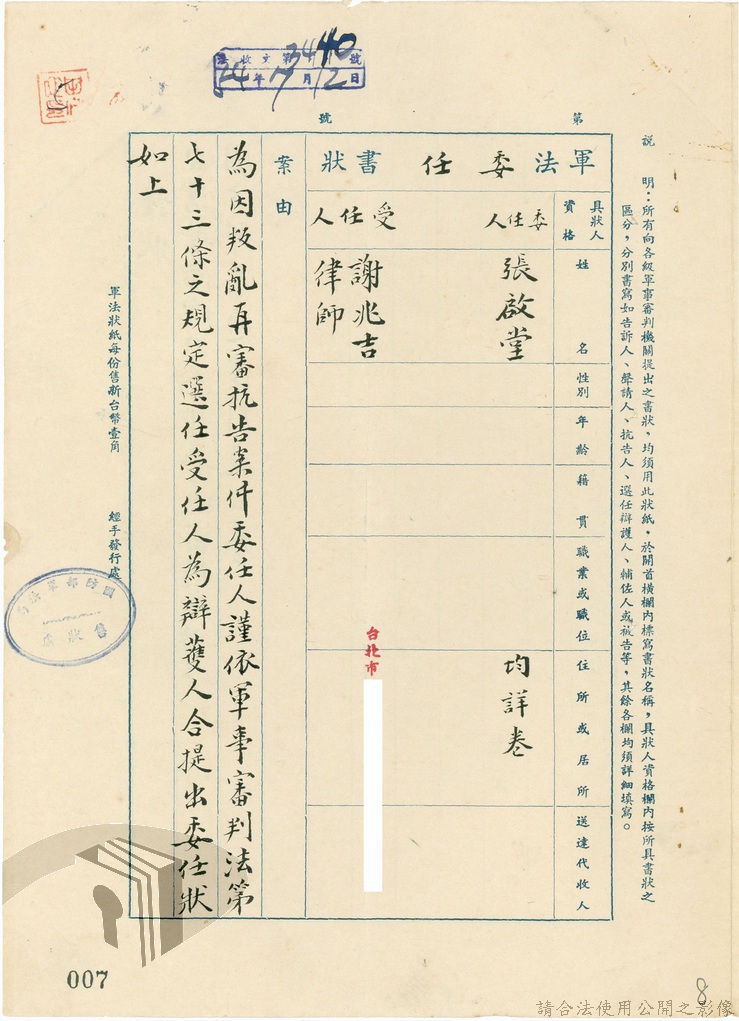 法收文第3440號
54年7月12日
第 號
說 明：所有向各級軍事審判機關提出之書狀，均須用此狀紙，於開首橫欄內標寫書狀名稱，具狀人資格欄內按所具書狀之
區分，分別書寫如告訴人、聲請人、抗告人、選任辯護人、輔佐人或被告等，其餘各欄均須詳細填寫。
軍法委任書狀
具狀人資格
姓名
性別
年齡
籍貫
職業或職位
住所或居所
送達代收人
委任人
張啟堂
均詳卷
受任人
謝兆吉
律師
台北市
案由
為因叛亂再審抗告案件委任人謹依軍事審判法第
七十三條之規定選任受任人為辯護人合提出委任狀
如上
軍法狀紙每份售新台幣壹角
經手發行處
國防部軍法
售狀處
007
8
請合法使用公開之影像